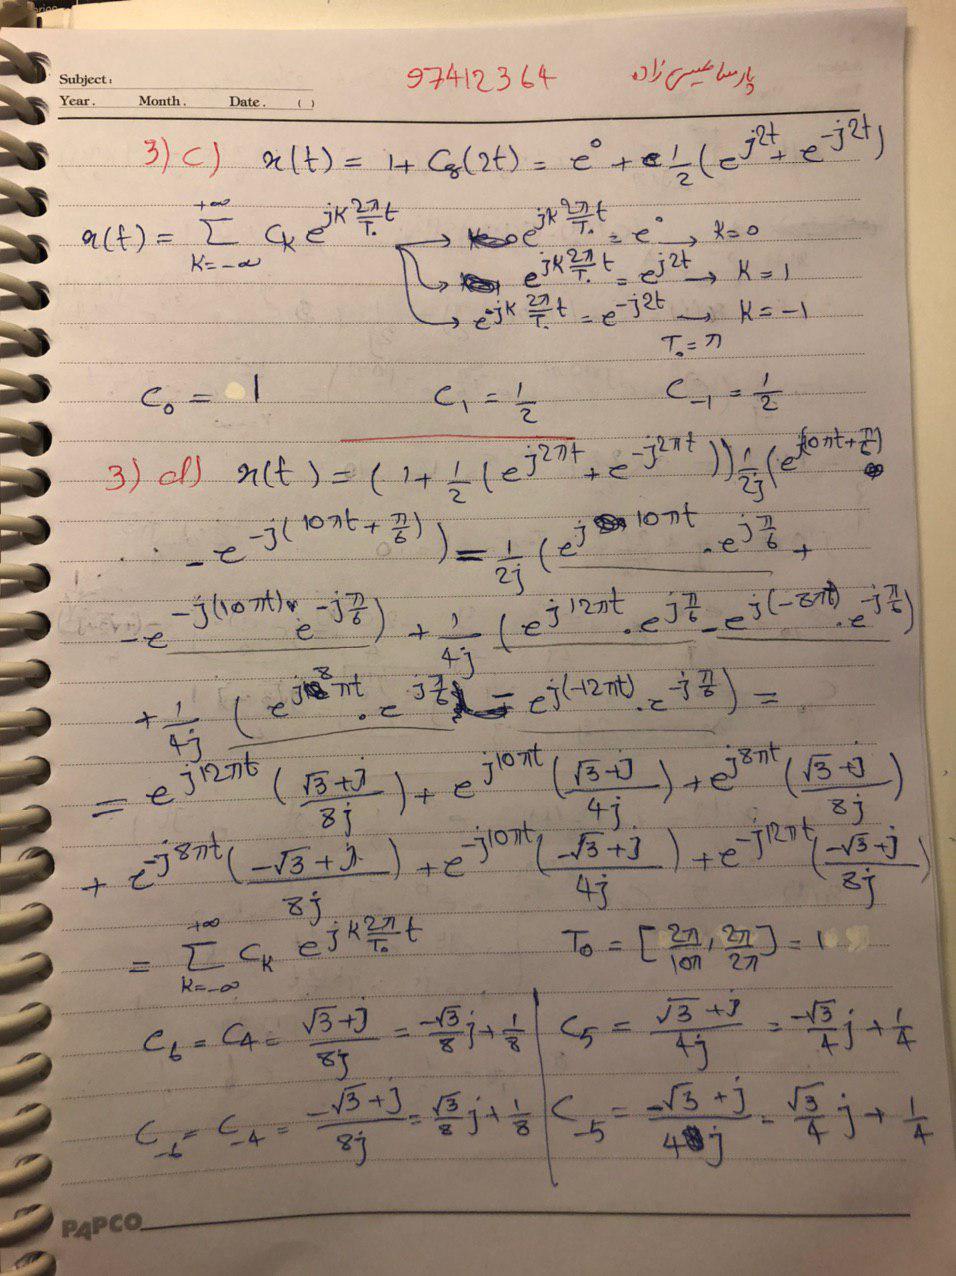 Subject:
97412364 پارسا عیسی زاده
Year. Month. Date. ( )
3) c) x(t) = 1 + Cos(2t) = e^0 + 1/2 (e^{j2t} + e^{-j2t})
x(t) = Σ_{k=-∞}^{+∞} C_k e^{jk 2π/T₀ t} → e^{jk 2π/T₀ t} = e^0 → k=0
e^{jk 2π/T₀ t} = e^{j2t} → k = 1
e^{-jk 2π/T₀ t} = e^{-j2t} → k = -1
T₀ = π
C₀ = 1 C₁ = 1/2 C₋₁ = 1/2
3) d) x(t) = (1 + 1/2 (e^{j2πt} + e^{-j2πt})) 1/2j (e^{j(10πt + π/6)}
- e^{-j(10πt + π/6)}) = 1/2j (e^{j10πt} . e^{jπ/6} +
- e^{-j(10πt)} . e^{-jπ/6}) + 1/4j (e^{j12πt} . e^{jπ/6} - e^{j(-8πt)} . e^{-jπ/6})
+ 1/4j (e^{j8πt} . e^{jπ/6} - e^{j(-12πt)} . e^{-jπ/6}) =
= e^{j12πt} ((√3+j)/8j) + e^{j10πt} ((√3+j)/4j) + e^{j8πt} ((√3+j)/8j)
+ e^{-j8πt} ((-√3+j)/8j) + e^{-j10πt} ((-√3+j)/4j) + e^{-j12πt} ((-√3+j)/8j)
= Σ_{k=-∞}^{+∞} C_k e^{jk 2π/T₀ t} T₀ = [2π/10π , 2π/2π] = 1
C₆ = C₄ = (√3+j)/8j = -√3/8 j + 1/8 C₅ = (√3+j)/4j = -√3/4 j + 1/4
C₋₆ = C₋₄ = (-√3+j)/8j = √3/8 j + 1/8 C₋₅ = (-√3+j)/4j = √3/4 j + 1/4
PAPCO